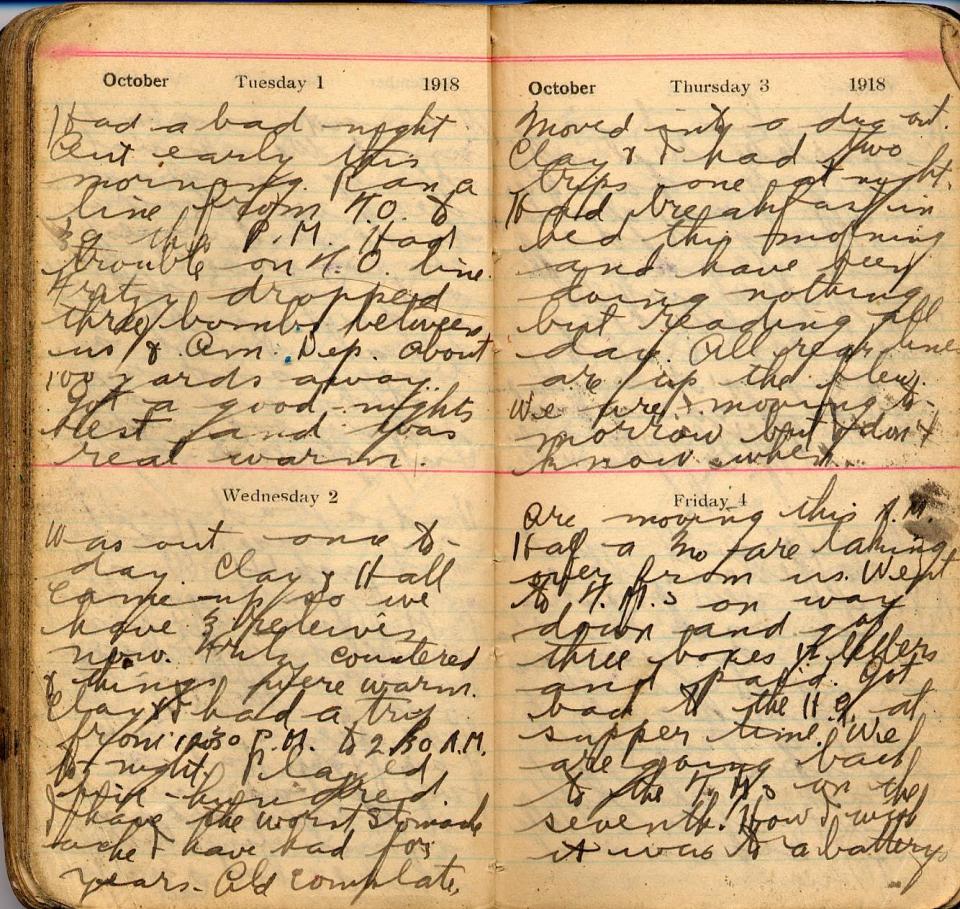 October Tuesday 1 1918
Had a bad night
Out early this
morning. Ran a
line from T.O. to
39 this P.M. Had
trouble on T.O. line.
Fritzy dropped
three bombs between
us & Am. Dep. about
100 yards away.
Got a good nights
rest and was
real warm.
Wednesday 2
Was out once to-
day. Clay & Hall
came up so we
have 3 receivers
now. Fritz countered
& things were warm.
Clay & I had a trip
from 12:30 P.M. to 2:30 A.M.
to night. Played
five-hundred.
I have the worst stomach
ache I have had for
years. Old complaint,
October Thursday 3 1918
Moved into a dug out.
Clay & I had two
trips one at night.
Had breakfast in
bed this morning
and have been
doing nothing
but reading all
day. All rear lines
are up the flew.
We are moving to-
morrow but I don't
know when.
Friday 4
Are moving this A.M.
Half a Mo are taking
over from us. Went
to H.M.s on way
down and got
three boxes 12 letters
and paid. Got
back to the H.Q. at
supper time. We
are going back
to the H.M.s on the
seventh. How I wish
it was to a battery